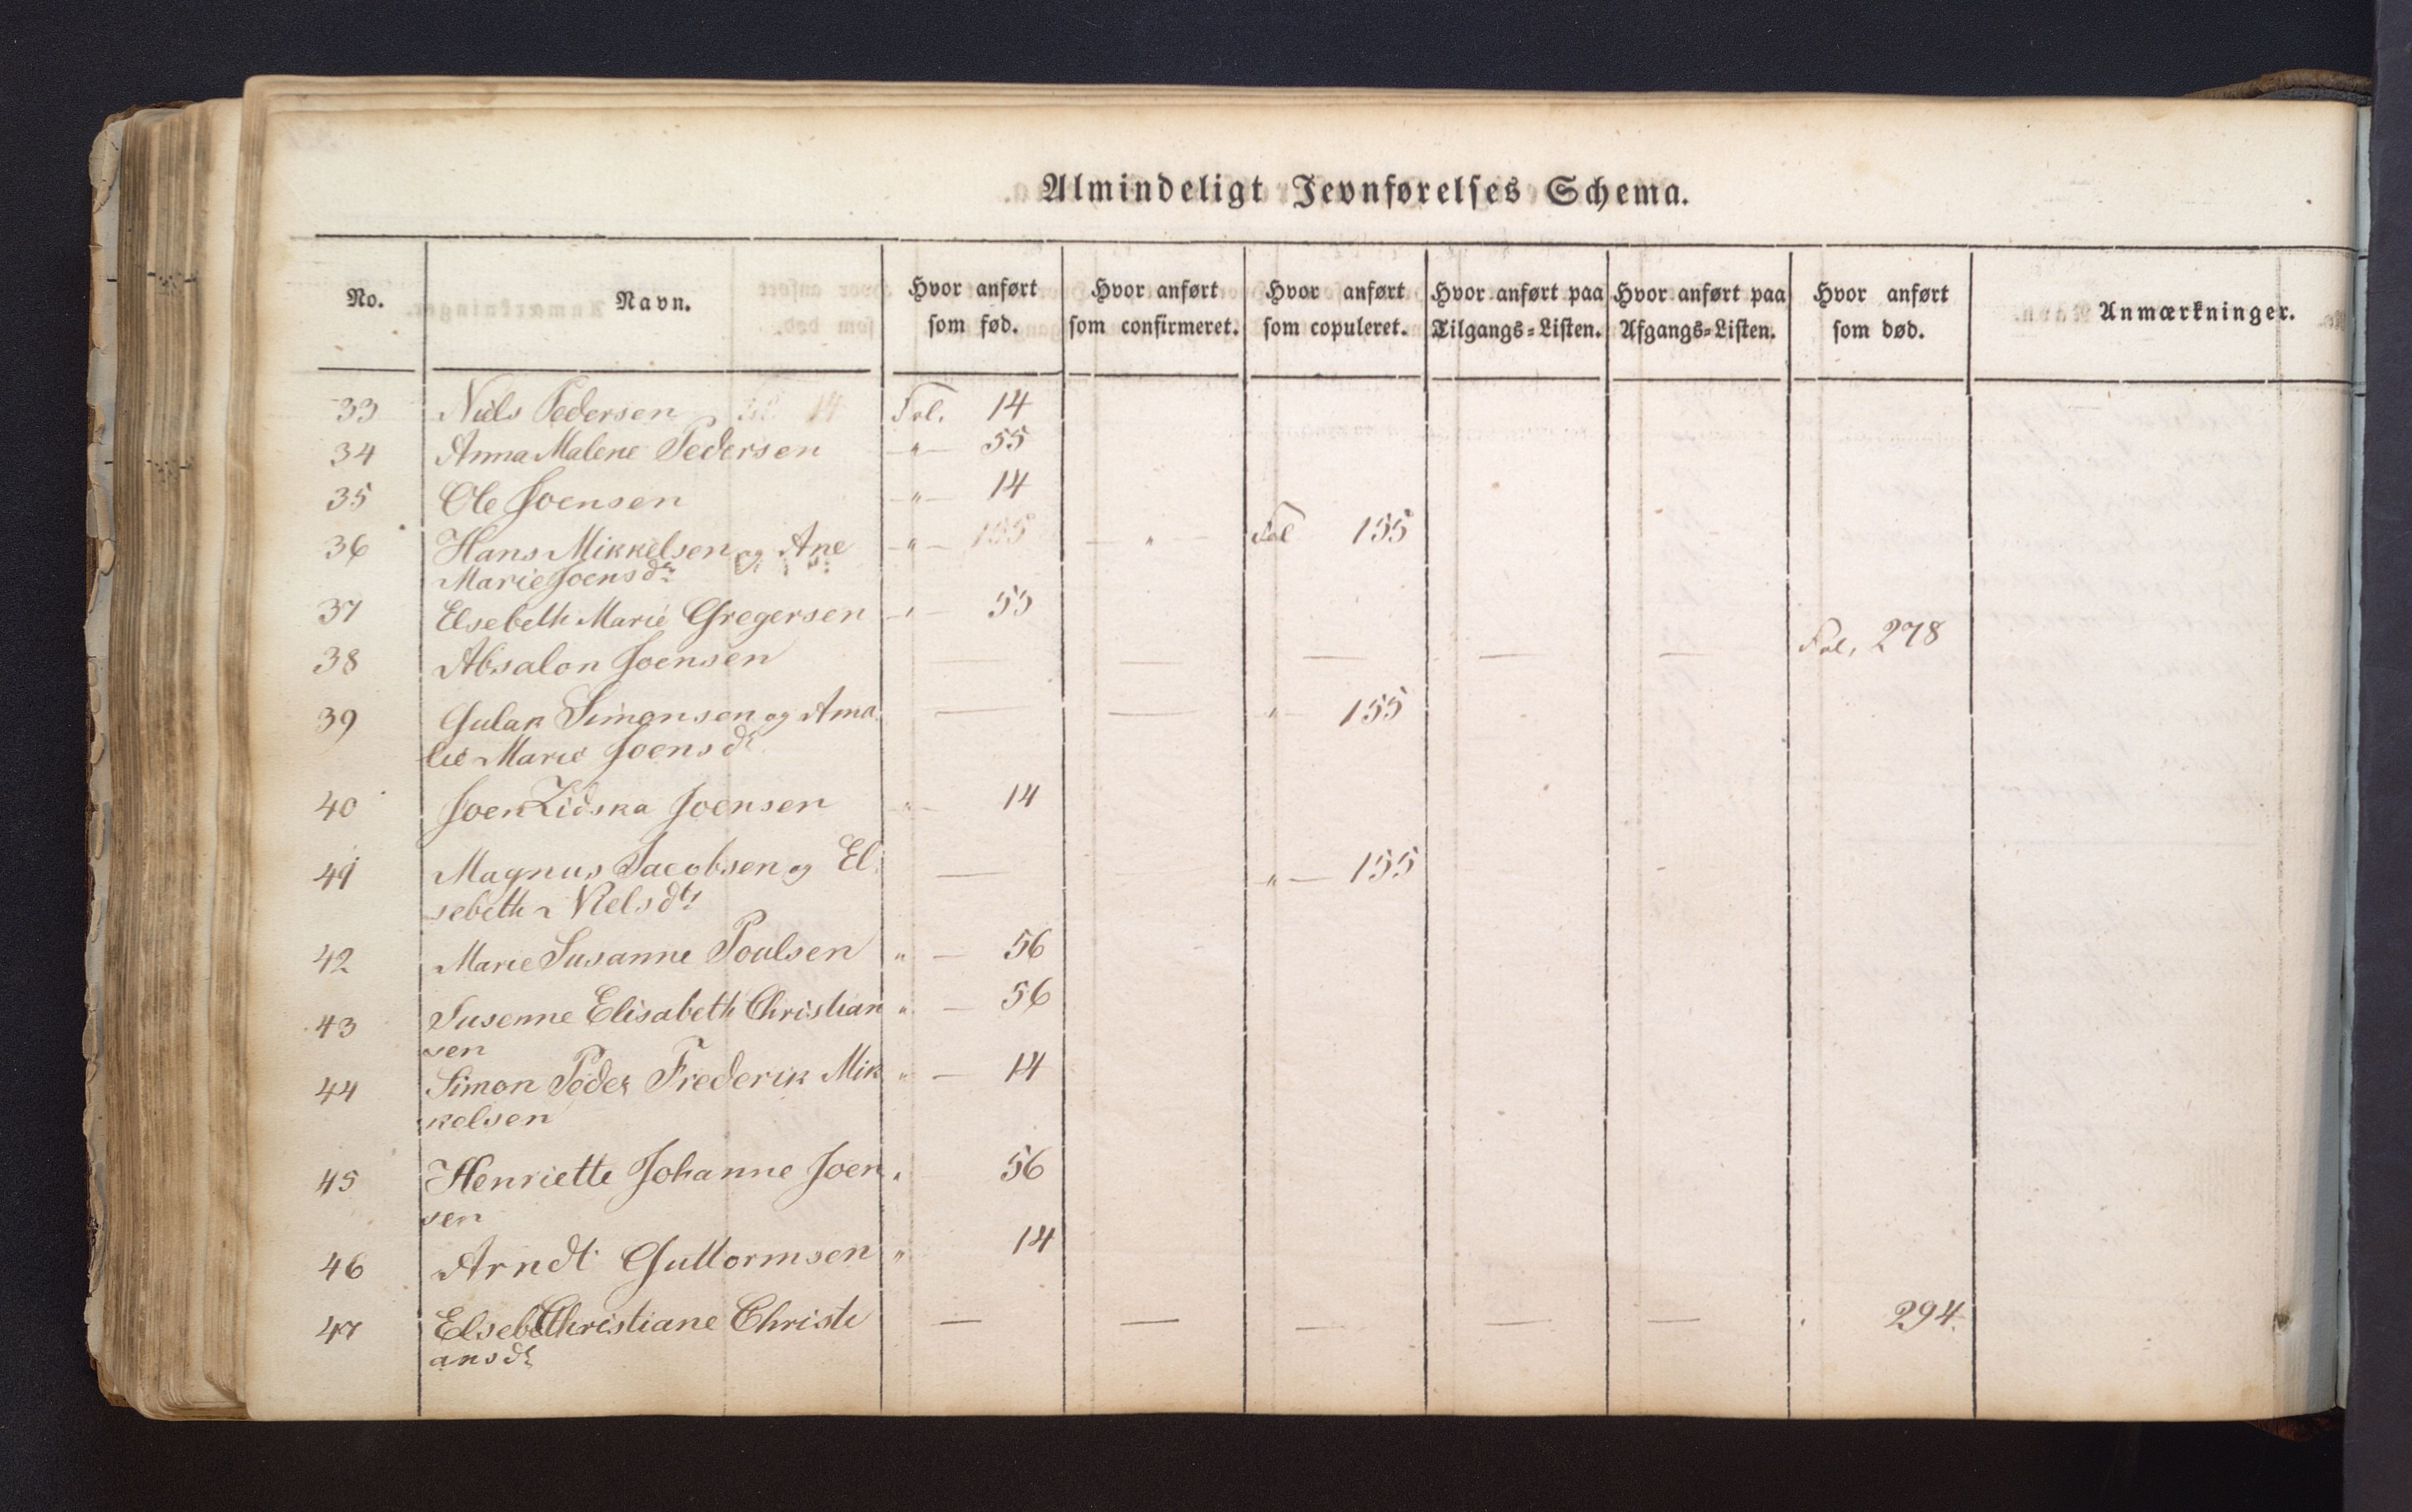 Almindeligt Jevnførelses Schema.
No. Navn. Hvor anført som fød. Hvor anført som confirmeret. Hvor anført som copuleret. Hvor anført paa Tilgangs-Listen. Hvor anført paa Afgangs-Listen. Hvor anført som død. Anmærkninger.
33 Niels Pedersen Fol. 14
34 Anna Malene Pedersen —"— 55
35 Ole Joensen —"— 14
36 Hans Mikkelsen og Ane —"— 155 — " — Fol 155
Marie Joensdr
37 Elsebeth Marie Gregersen —"— 55
38 Absalon Joensen — — — — Fol, 278
39 Gulak Simonsen og Ama — — " 155
lie Marie Joensdr
40 Joen Zidska Joensen " — 14
41 Magnus Jacobsen og El — —"— 155
sebeth Nielsdtr
42 Marie Susanne Poulsen " — 56
43 Susenne Elisabeth Christian " — 56
sen
44 Simon Peder Frederik Mik " — 14
kelsen
45 Henriette Johanne Joen " 56
sen
46 Arndt Guttormsen " 14
47 Elsebeth Christiane Christi — — — — — 294
ansdr